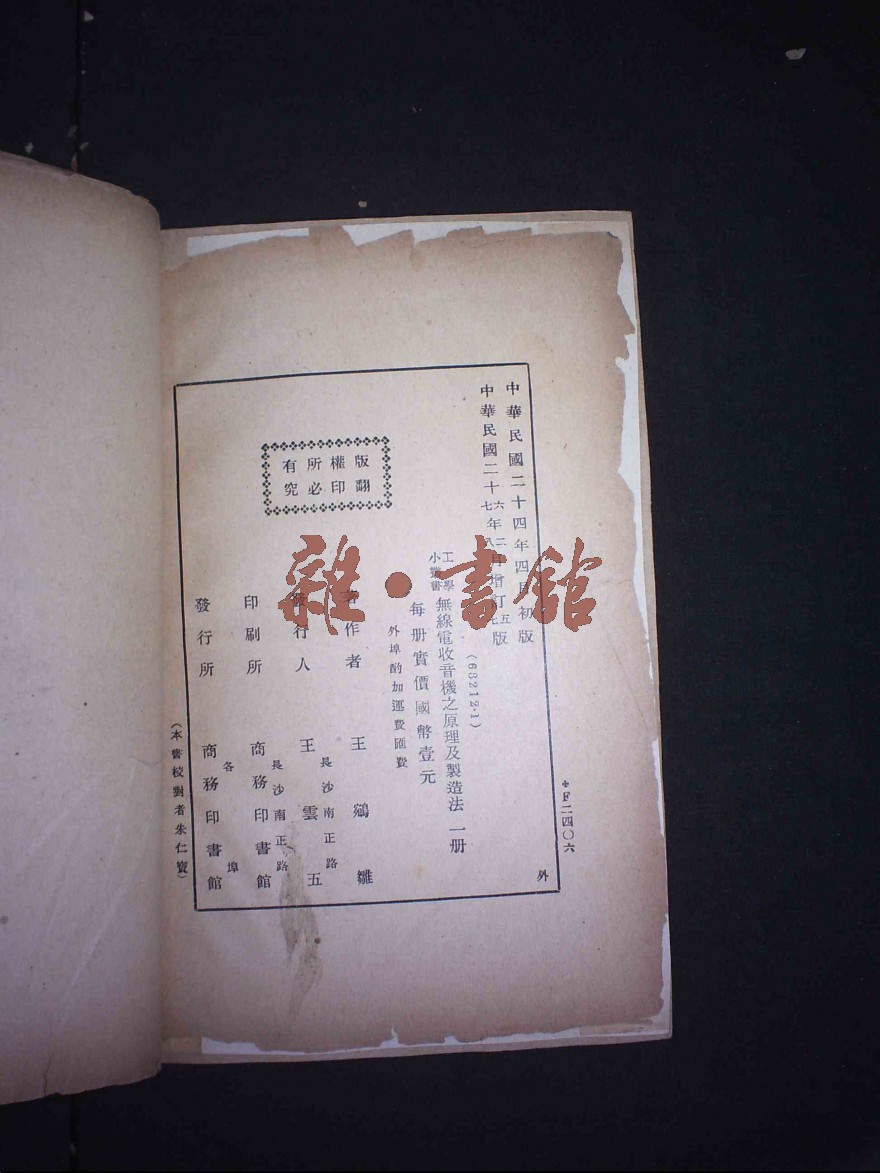 中華民國二十四年四月初版
中華民國二十六年二月增訂五版
七 八 七
(63212·1)
工學小叢書 無線電收音機之原理及製造法 一册
每册實價國幣壹元
外埠酌加運費匯費
著作者 王鵷雛
發行人 王雲五
長沙南正路
印刷所 商務印書館
長沙南正路
發行所 商務印書館
各埠
版權所有
翻印必究
(本書校對者朱仁寶)
*F二四〇六
外
雜·書館